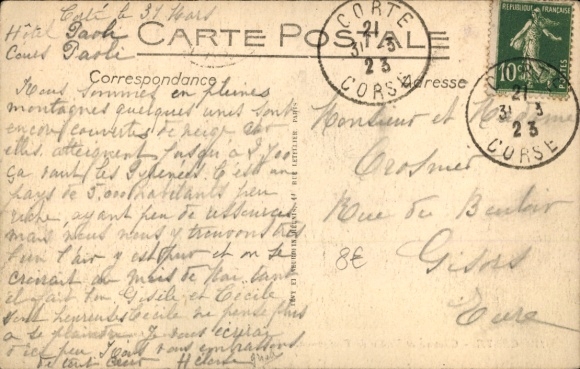 Corté le 31 Mars
Hôtel Paoli
Cours Paoli
CARTE POSTALE
Correspondance
Adresse
CORTE
21
31 - 3
23
CORSE
RÉPUBLIQUE FRANÇAISE
10
POSTES
21
31 3
23
CORSE
Nous sommes en pleines
montagnes quelques unes sont
encore couvertes de neige car
elles atteignent jusqu'à 2700
ça vaut les Pyrénées. C'est un
pays de 5.000 habitants peu
riche, ayant peu de ressources
mais nous nous y trouvons
bien l'air y est pur et on se
croirait au mois de Mai tant
il fait bon Gisèle et Cécile
sont heureuses Cécile ne pense plus
à se plaindre. Je vous écrirai
d'ici peu. Nous vous embrassons
de tout cœur Hélène
Monsieur et Madame
Crosnier
Rue du
Gisors
Eure
8€
RUE LETELLIER, PARIS